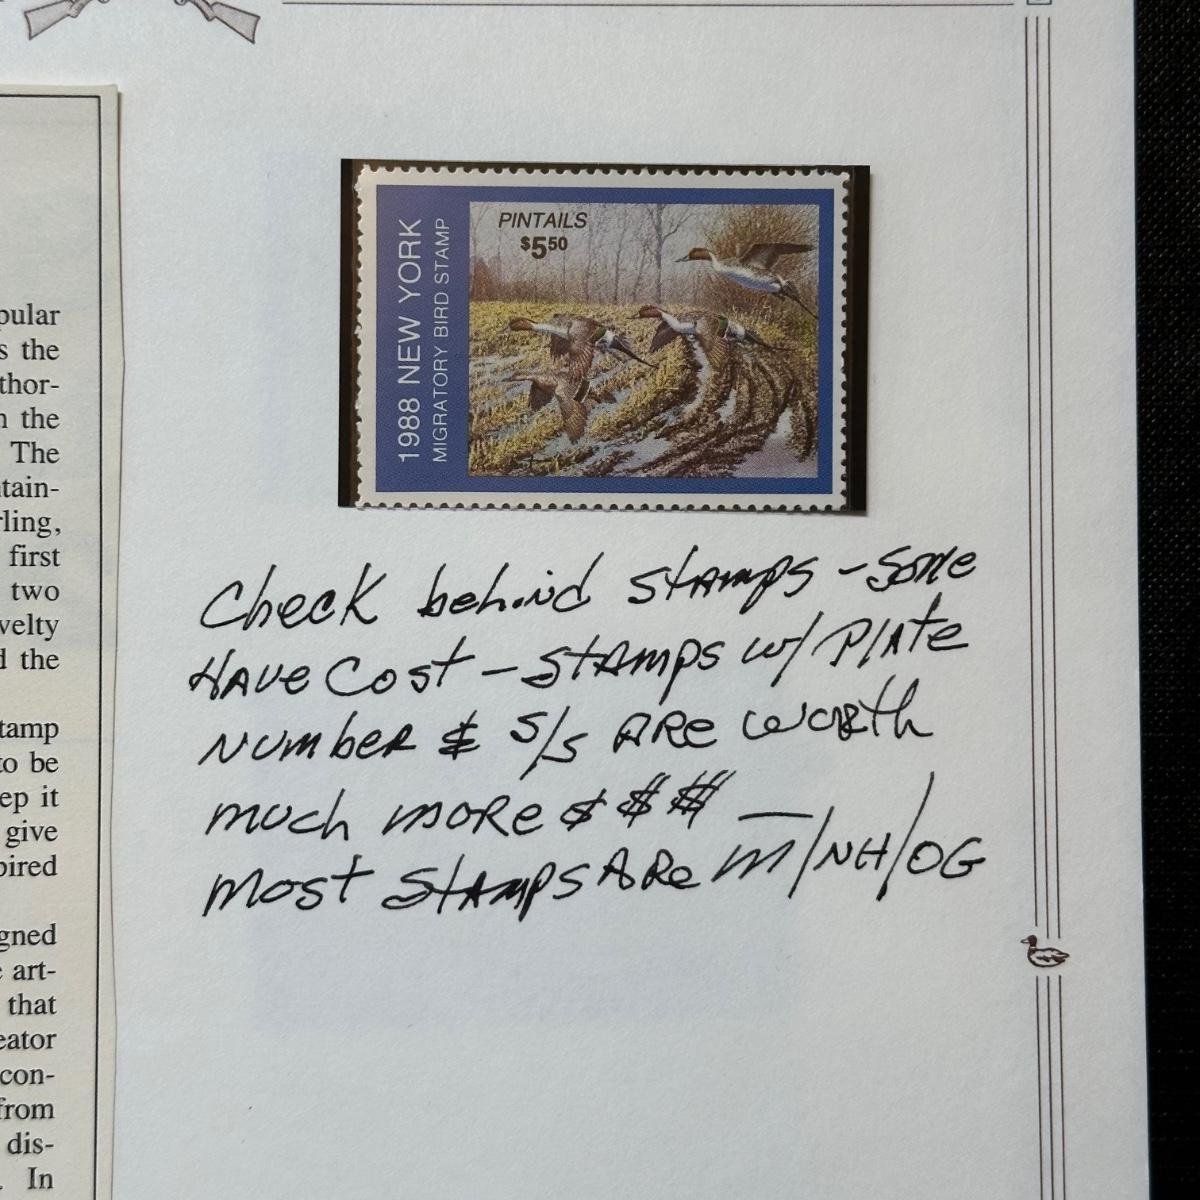 pular
s the
thor-
n the
The
tain-
rling,
first
two
velty
d the
tamp
to be
ep it
give
pired
gned
art-
that
eator
con-
from
dis-
. In
1988 NEW YORK
MIGRATORY BIRD STAMP
PINTAILS
$5.50
Check behind STAMPS – Some
HAVE Cost – STAMPS w/ PlAte
NUMbER & S/S ARE worth
much more $ $ $ —
MOST STAMPS ARe M/NH/OG